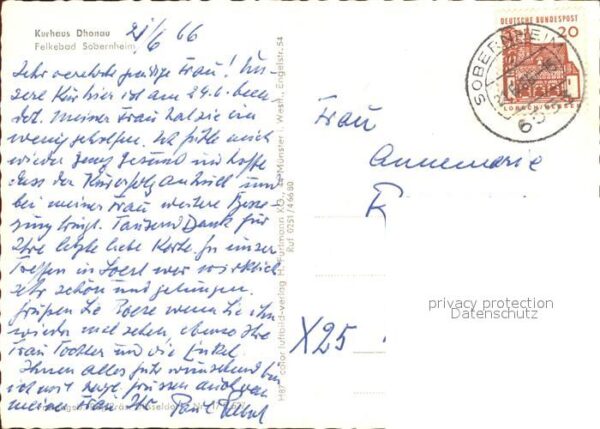 Kurhaus Dhonau
Felkebad Sobernheim
21/6 66
Sehr verehrte gnädige Frau! Un-
sere Kur hier ist am 24.6. been-
det. Meiner Frau hat sie ein
wenig geholfen. Ich fühle mich
wieder ganz gesund und hoffe
dass der Kurerfolg anhält und
bei meiner Frau weitere Besse-
rung bringt. Tausend Dank für
Ihre letzte liebe Karte.
Treffen in Soest war wirklich
sehr schön und gelungen.
Grüßen Sie wenn Sie ihn
wieder mal sehen ebenso Ihre
Frau Tochter und die Enkel.
Ihnen alles gute wünschend bin
ich mit grüssen auch von
meiner Frau Ihr Paul
H87 color luftbild-verlag H. 44 Münster i. Westf., Engelstr. 54
Ruf 0251/4 66 80
DEUTSCHE BUNDESPOST
20
LORSCH/HESSEN
SOBERNHEIM
Frau
Annemarie
X25
privacy protection
Datenschutz